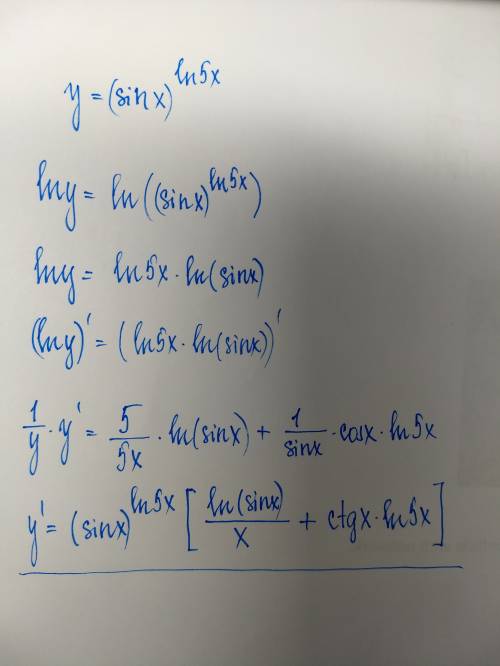 y = (sin x)^{ln5x}
lny = ln((sinx)^{ln5x})
lny = ln5x · ln(sinx)
(lny)' = (ln5x · ln(sinx))'
1/y · y' = 5/5x · ln(sinx) + 1/sinx · cosx · ln5x
y' = (sinx)^{ln5x} [ln(sinx)/x + ctgx · ln5x]